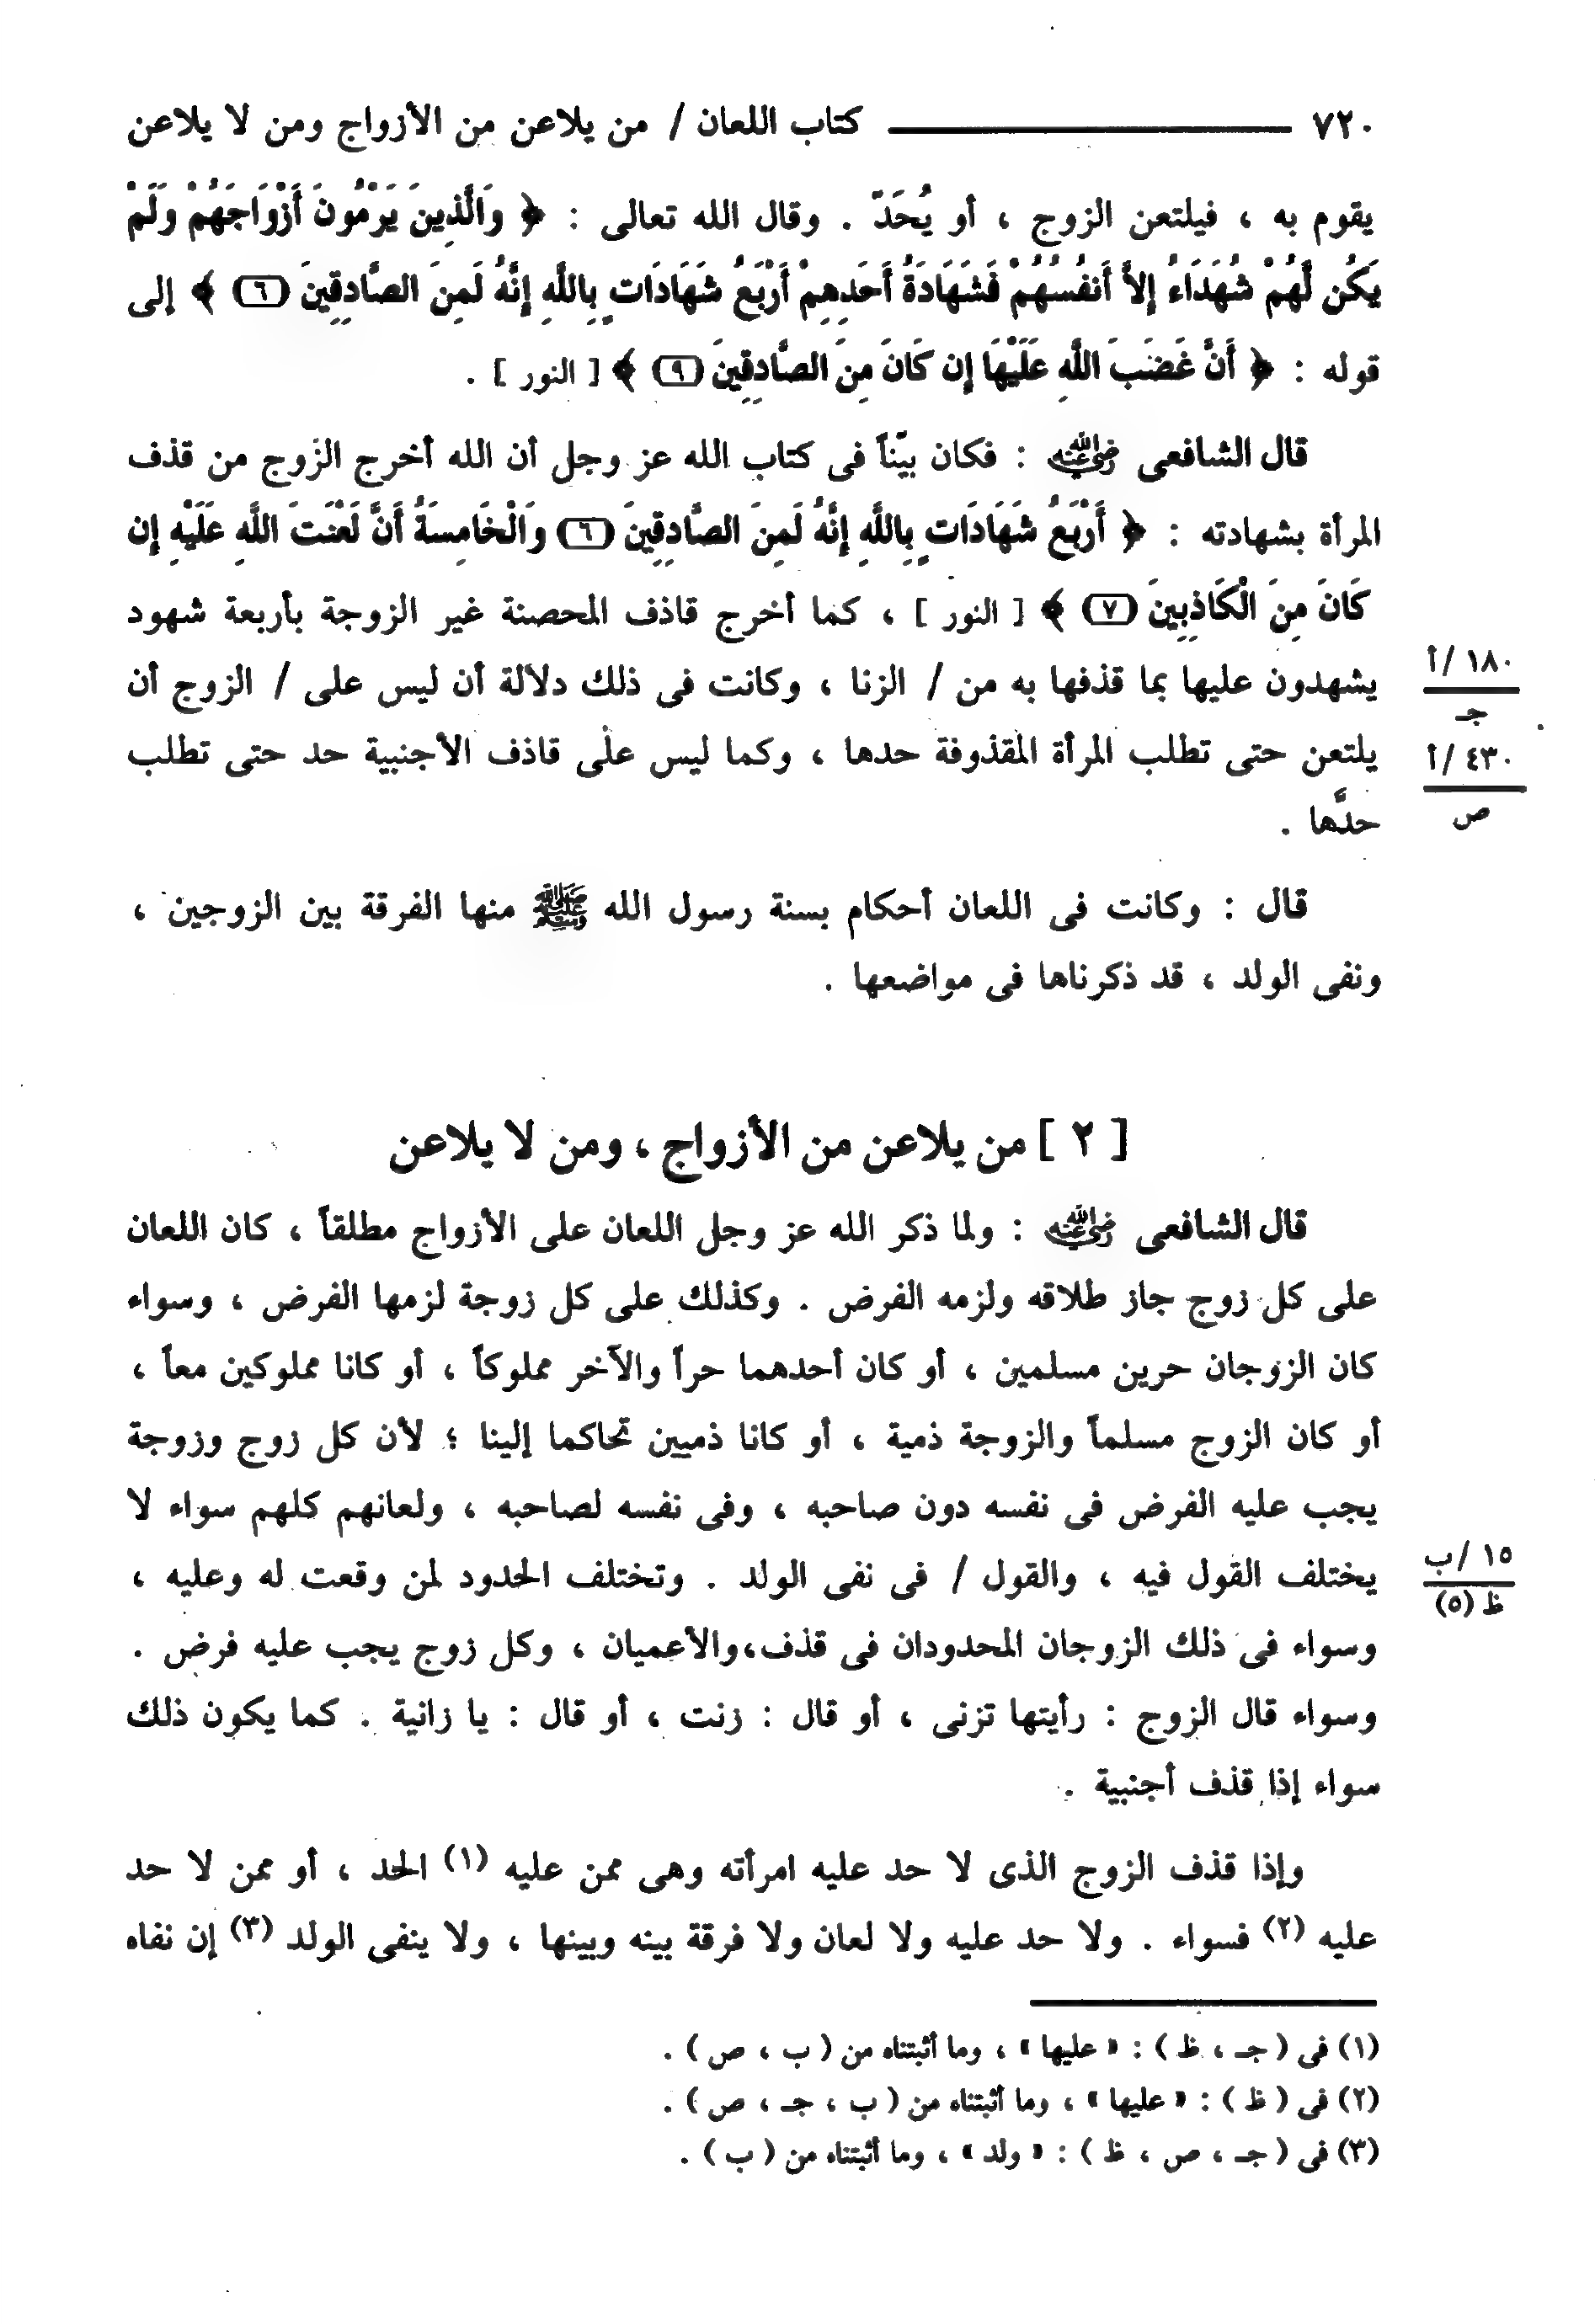 ٧٢٠ ــــــــــــ كتاب اللعان / من يلاعن من الأزواج ومن لا يلاعن
يقوم به ، فيلتعن الزوج ، أو يُحَدّ . وقال الله تعالى : ﴿ وَالَّذِينَ يَرْمُونَ أَزْوَاجَهُمْ وَلَمْ
يَكُن لَّهُمْ شُهَدَاءُ إِلاَّ أَنفُسُهُمْ فَشَهَادَةُ أَحَدِهِمْ أَرْبَعُ شَهَادَاتٍ بِاللَّهِ إِنَّهُ لَمِنَ الصَّادِقِينَ (٦) ﴾ إلى
قوله : ﴿ أَنَّ غَضَبَ اللَّهِ عَلَيْهَا إِن كَانَ مِنَ الصَّادِقِينَ (٩) ﴾ [ النور ] .
قال الشافعى رضي الله عنه : فكان بيّناً فى كتاب الله عز وجل أن الله أخرج الزوج من قذف
المرأة بشهادته : ﴿ أَرْبَعُ شَهَادَاتٍ بِاللَّهِ إِنَّهُ لَمِنَ الصَّادِقِينَ (٦) وَالْخَامِسَةُ أَنَّ لَعْنَتَ اللَّهِ عَلَيْهِ إِن
كَانَ مِنَ الْكَاذِبِينَ (٧) ﴾ [ النور ] ، كما أخرج قاذف المحصنة غير الزوجة بأربعة شهود
يشهدون عليها بما قذفها به من / الزنا ، وكانت فى ذلك دلالة أن ليس على / الزوج أن
١٨٠ /أ
جـ
يلتعن حتى تطلب المرأة المقذوفة حدها ، وكما ليس على قاذف الأجنبية حد حتى تطلب
٤٣٠ /أ
ص
حدَّها .
قال : وكانت فى اللعان أحكام بسنة رسول الله ﷺ منها الفرقة بين الزوجين ،
ونفى الولد ، قد ذكرناها فى مواضعها .
[ ٢ ] من يلاعن من الأزواج ، ومن لا يلاعن
قال الشافعى رضي الله عنه : ولما ذكر الله عز وجل اللعان على الأزواج مطلقاً ، كان اللعان
على كل زوج جاز طلاقه ولزمه الفرض . وكذلك على كل زوجة لزمها الفرض ، وسواء
كان الزوجان حرين مسلمين ، أو كان أحدهما حراً والآخر مملوكاً ، أو كانا مملوكين معاً ،
أو كان الزوج مسلماً والزوجة ذمية ، أو كانا ذميين تحاكما إلينا ؛ لأن كل زوج وزوجة
يجب عليه الفرض فى نفسه دون صاحبه ، وفى نفسه لصاحبه ، ولعانهم كلهم سواء لا
يختلف القول فيه ، والقول / فى نفى الولد . وتختلف الحدود لمن وقعت له وعليه ،
١٥ /ب
ظ (٥)
وسواء فى ذلك الزوجان المحدودان فى قذف،والأعميان ، وكل زوج يجب عليه فرض .
وسواء قال الزوج : رأيتها تزنى ، أو قال : زنت ، أو قال : يا زانية . كما يكون ذلك
سواء إذا قذف أجنبية .
وإذا قذف الزوج الذى لا حد عليه امرأته وهى ممن عليه (١) الحد ، أو ممن لا حد
عليه (٢) فسواء . ولا حد عليه ولا لعان ولا فرقة بينه وبينها ، ولا ينفى الولد (٣) إن نفاه
(١) فى ( جـ ، ظ ) : « عليها » ، وما أثبتناه من ( ب ، ص ) .
(٢) فى ( ظ ) : « عليها » ، وما أثبتناه من ( ب ، جـ ، ص ) .
(٣) فى ( جـ ، ص ، ظ ) : « ولد » ، وما أثبتناه من ( ب ) .